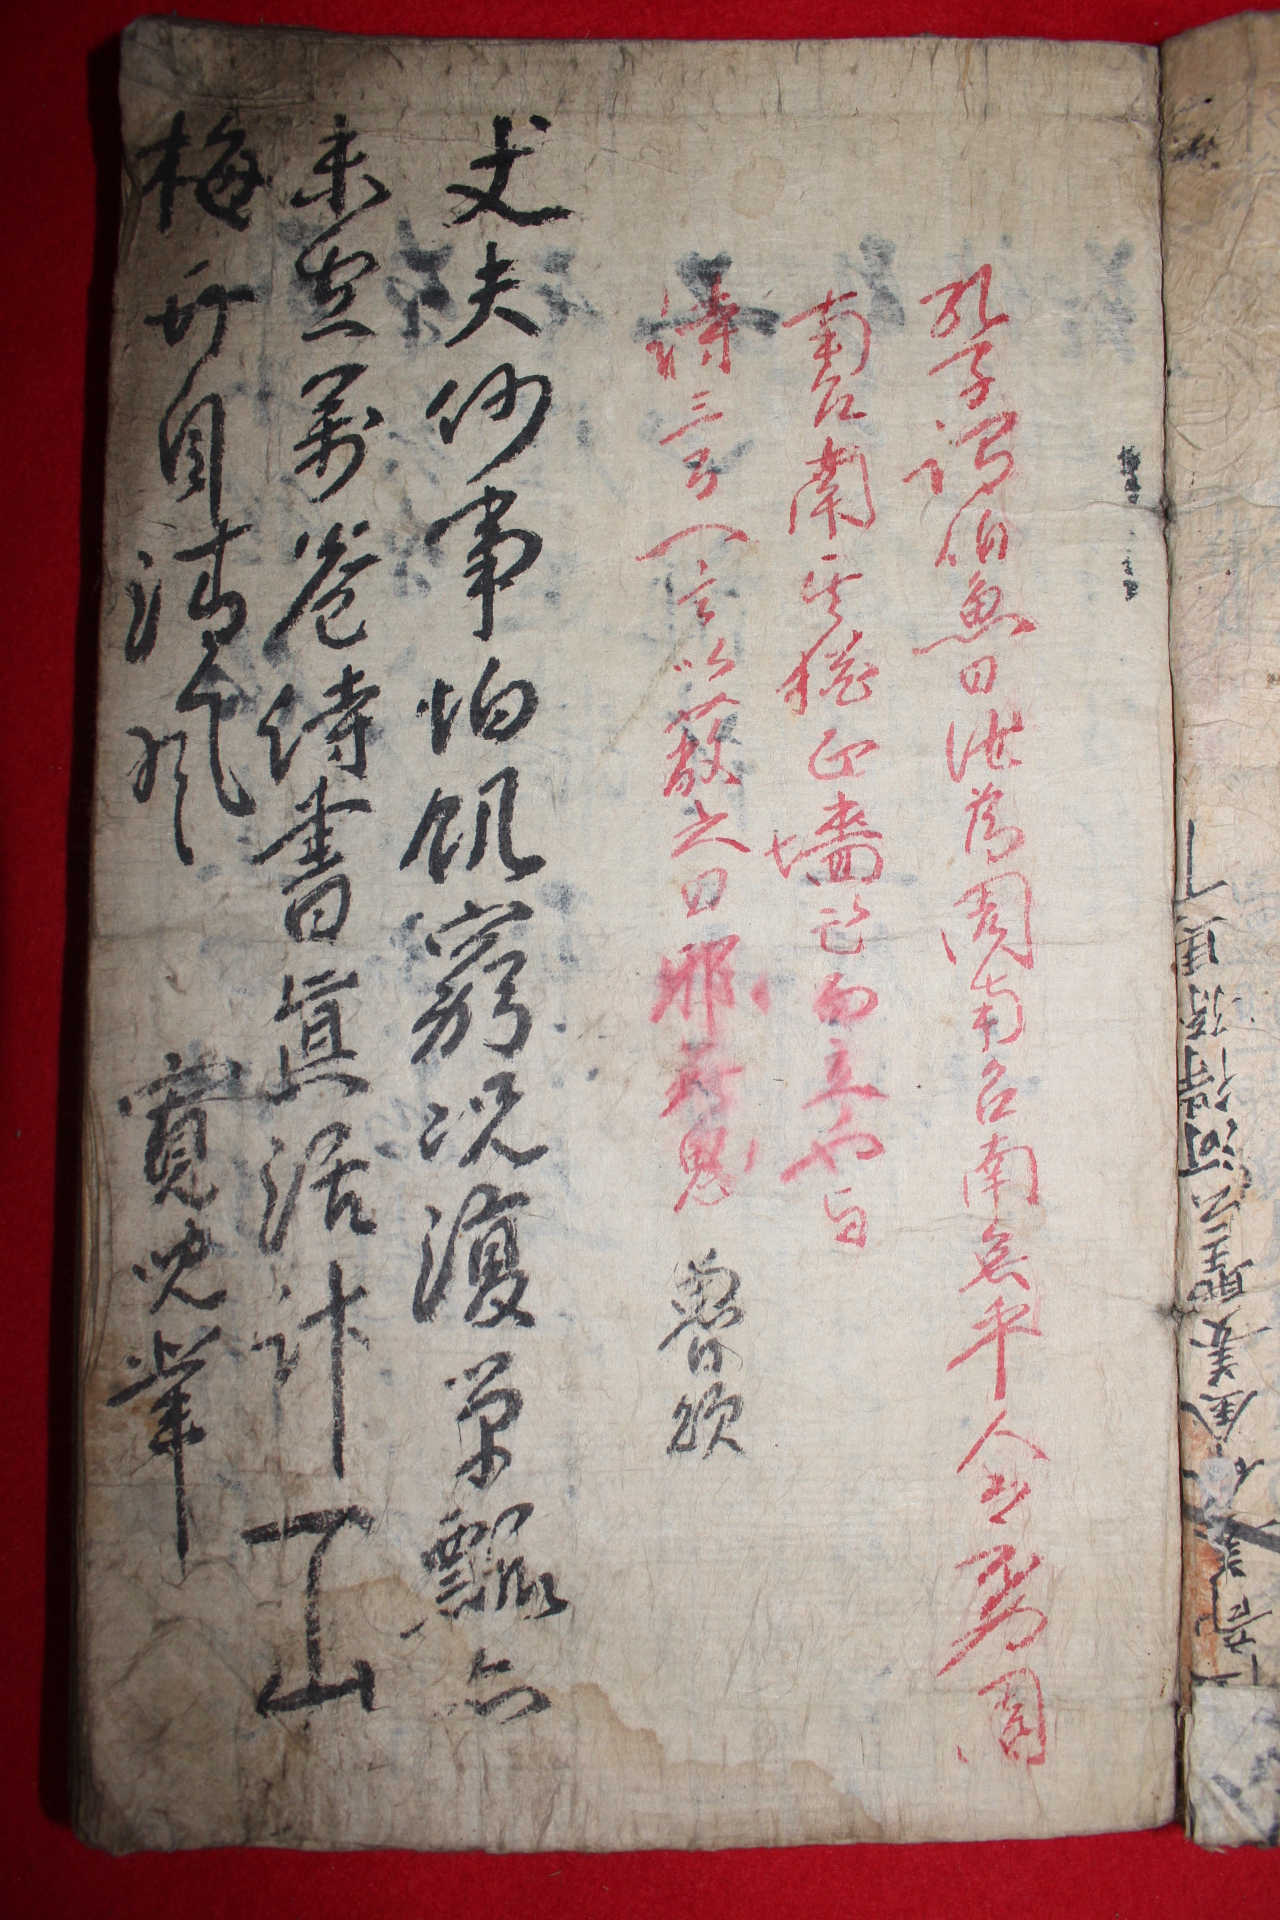 孔子謂伯魚曰汝爲周南召南矣乎人不爲周
南召南其猶正墻面而立也与
詩三百一言以蔽之曰耶無思 魯頌
丈夫何事怕飢窮況復簞瓢亦
未空萬卷詩書眞活計一山
梅竹自清風